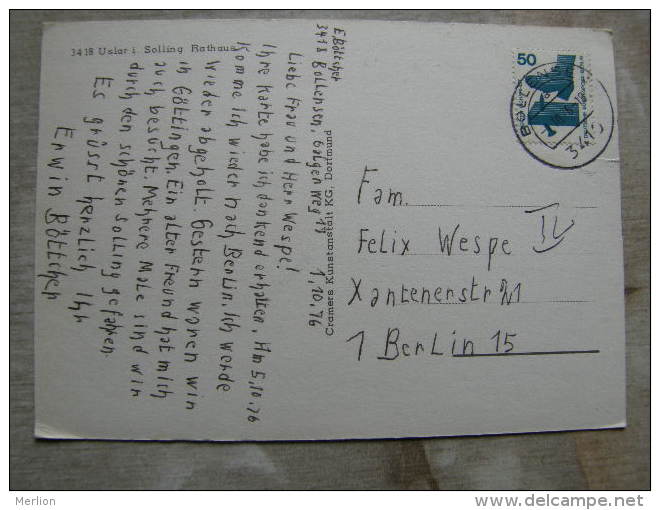 3418 Uslar i. Solling Rathaus
E. Böttcher
3418 Bollensen, Galgenweg 17
1.10.76
Liebe Frau und Herr Wespe!
Ihre Karte habe ich dankend erhalten. Am 5.10.76
komme ich wieder nach Berlin. Ich werde
wieder abgeholt. Gestern waren wir
in Göttingen. Ein alter Freund hat mich
auch besucht. Mehrere Male sind wir
durch den schönen Solling gefahren.
Es grüsst herzlich Ihr
Erwin Böttcher
Cramers Kunstanstalt KG, Dortmund
50
BOLLENS
3418
Fam.
Felix Wespe IV
Xantenerstr 21
1 Berlin 15
Merlion
www.delcampe.net